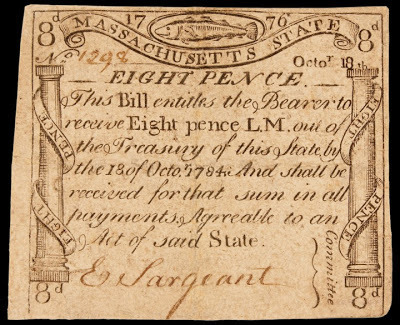 8d 17 76 8d
MASSACHUSETTS STATE
No. 1298 Octor. 18th.
EIGHT PENCE.
This Bill entitles the Bearer to
receive Eight pence L.M. out of
the Treasury of this State, by
the 18 of Octo. 1784. And shall be
received for that sum in all
payments, Agreeable to an
Act of said State.
E Sargeant
Committee
EIGHT PENCE
EIGHT PENCE
8d 8d